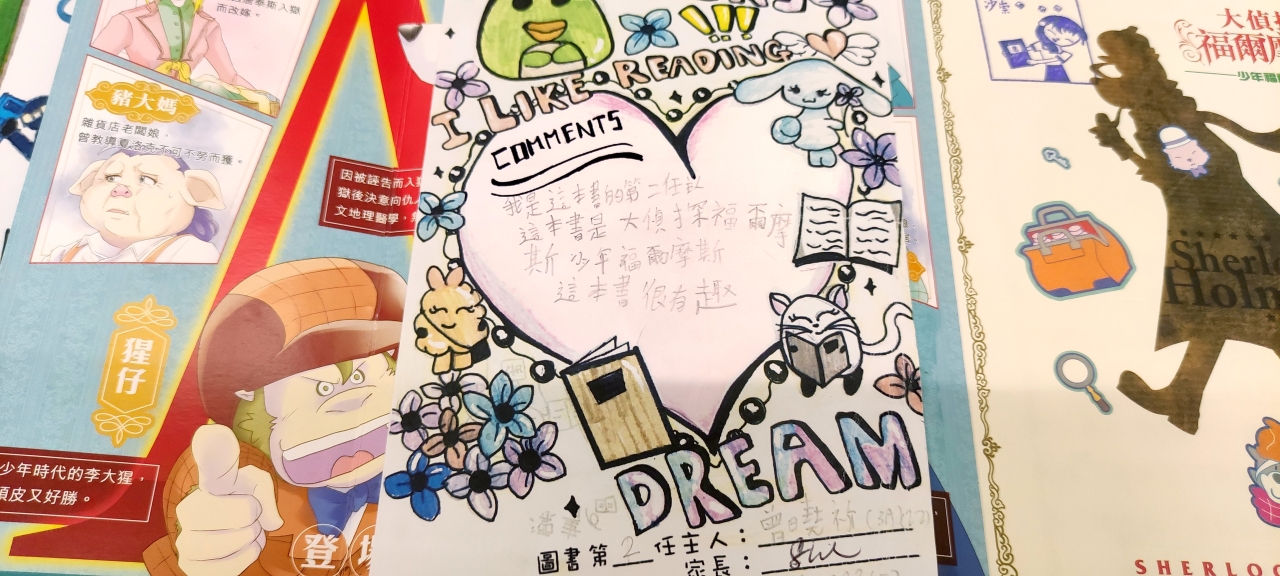 而改嫁。
豬大媽
雜貨店老闆娘，
曾教導夏洛克不可不勞而獲。
因被誣告而入
獄後決意向仇
文地理醫學，
猩仔
少年時代的李大猩，
頑皮又好勝。
登場
I LIKE READING
!!!
COMMENTS
我是這本書的第二任
這本書是大偵探福爾摩
斯 少年福爾摩斯
這本書很有趣
DREAM
圖書第2任主人：
家長：
大偵
福爾摩
少年福
Sherlo
Holm
SHERLOC